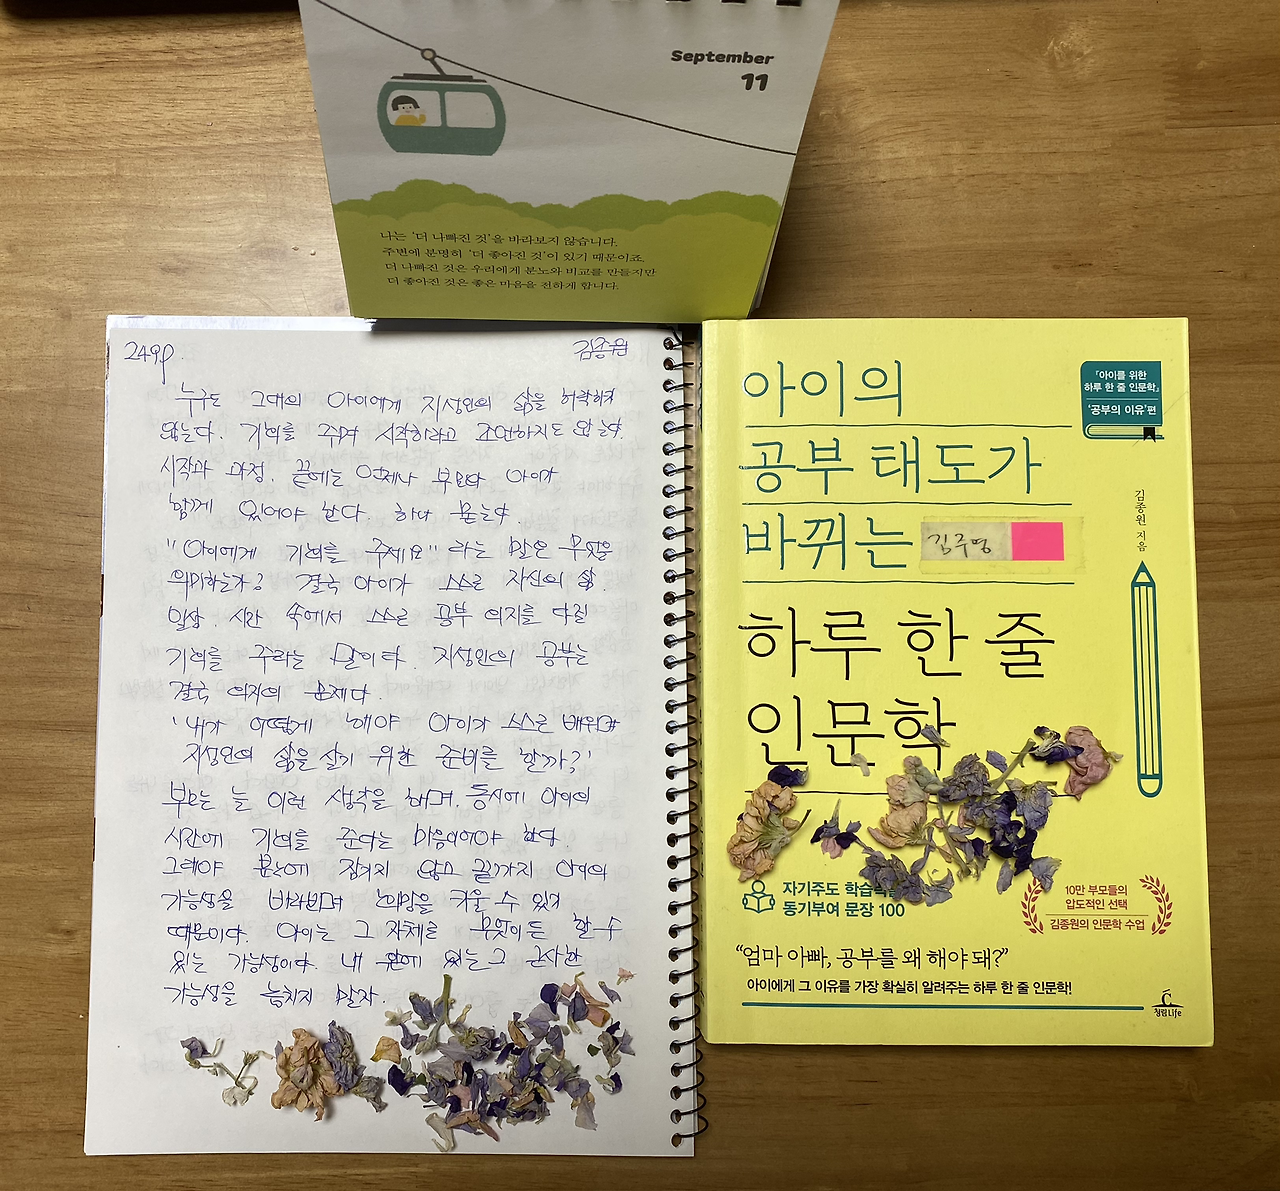 September
11
나는 '더 나빠진 것'을 바라보지 않습니다.
주변에 분명히 '더 좋아진 것'이 있기 때문이죠.
더 나빠진 것은 우리에게 분노와 비교를 만들지만
더 좋아진 것은 좋은 마음을 전하게 합니다.
249p.
김종원
누구도 그대의 아이에게 지성인의 삶을 허락하지
않는다. 기회를 주며 시작하라고 조언하지도 않는다.
시작과 과정, 끝에는 언제나 부모와 아이가
함께 있어야 한다. 하나 묻는다.
"아이에게 기회를 주세요" 라는 말은 무엇을
의미하는가? 결국 아이가 스스로 자신의 삶,
일상, 시간 속에서 스스로 공부 의지를 다질
기회를 주라는 말이다. 지성인의 공부는
결국 의지의 문제다.
'내가 어떻게 해야 아이가 스스로 배우며
지성인의 삶을 살기 위한 준비를 할까?'
부모는 늘 이런 생각을 하며, 동시에 아이의
시간에 기회를 준다는 마음이어야 한다.
그래야 분노에 잠기지 않고 끝까지 아이의
가능성을 바라보며 희망을 키울 수 있기
때문이다. 아이는 그 자체로 무엇이든 할 수
있는 가능성이다. 내 앞에 있는 그 근사한
가능성을 놓치지 말자.
아이의
공부 태도가
바뀌는
김주영
하루 한 줄
인문학
『아이를 위한
하루 한 줄 인문학』
'공부의 이유'편
김종원 지음
자기주도 학습력을
동기부여 문장 100
10만 부모들의
압도적인 선택
김종원의 인문학 수업
"엄마 아빠, 공부를 왜 해야 돼?"
아이에게 그 이유를 가장 확실히 알려주는 하루 한 줄 인문학!
청림Life